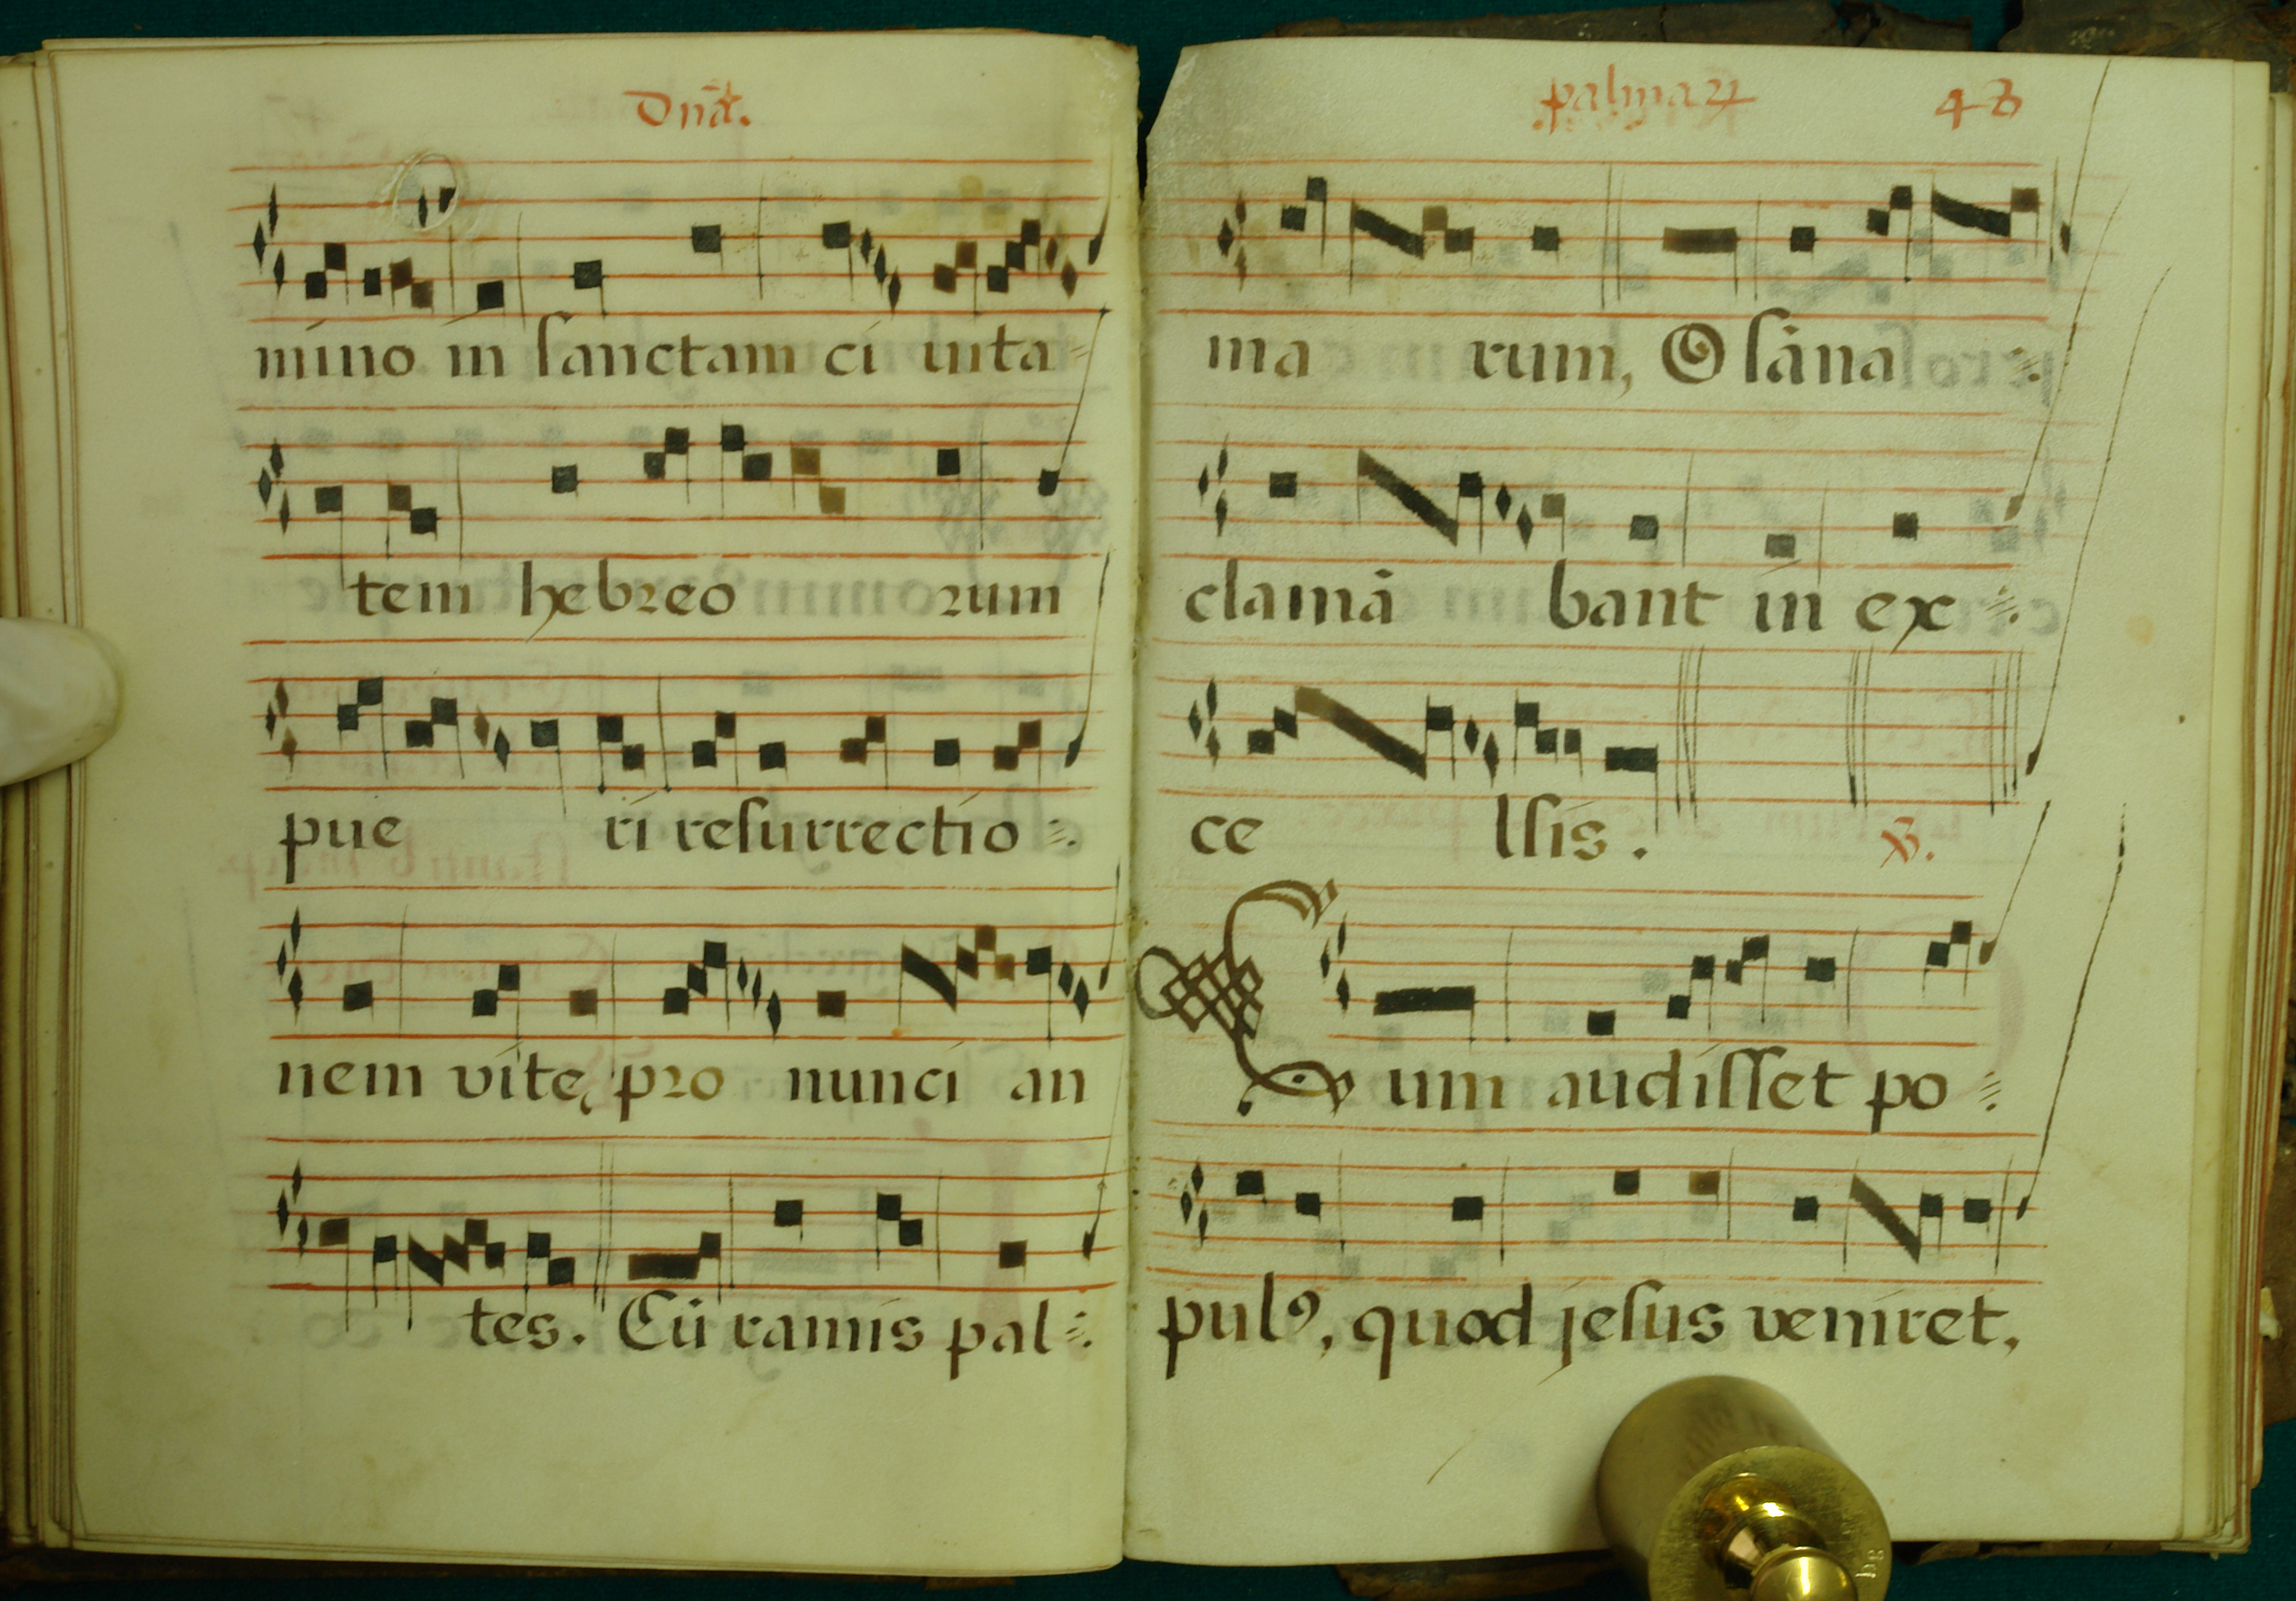 Dnã.
mino in ſanctam ci uita=
tem hebreo rum
pue ri reſurrectio =.
nem vite, pro nunci an
tes. Cũ ramis pal =.
palmaꝝ 43
ma rum, O ſāna =.
clamā bant in ex =.
ce lſis.
℣.
Cum audiſſet po =.
pulꝰ, quod jeſus veniret,